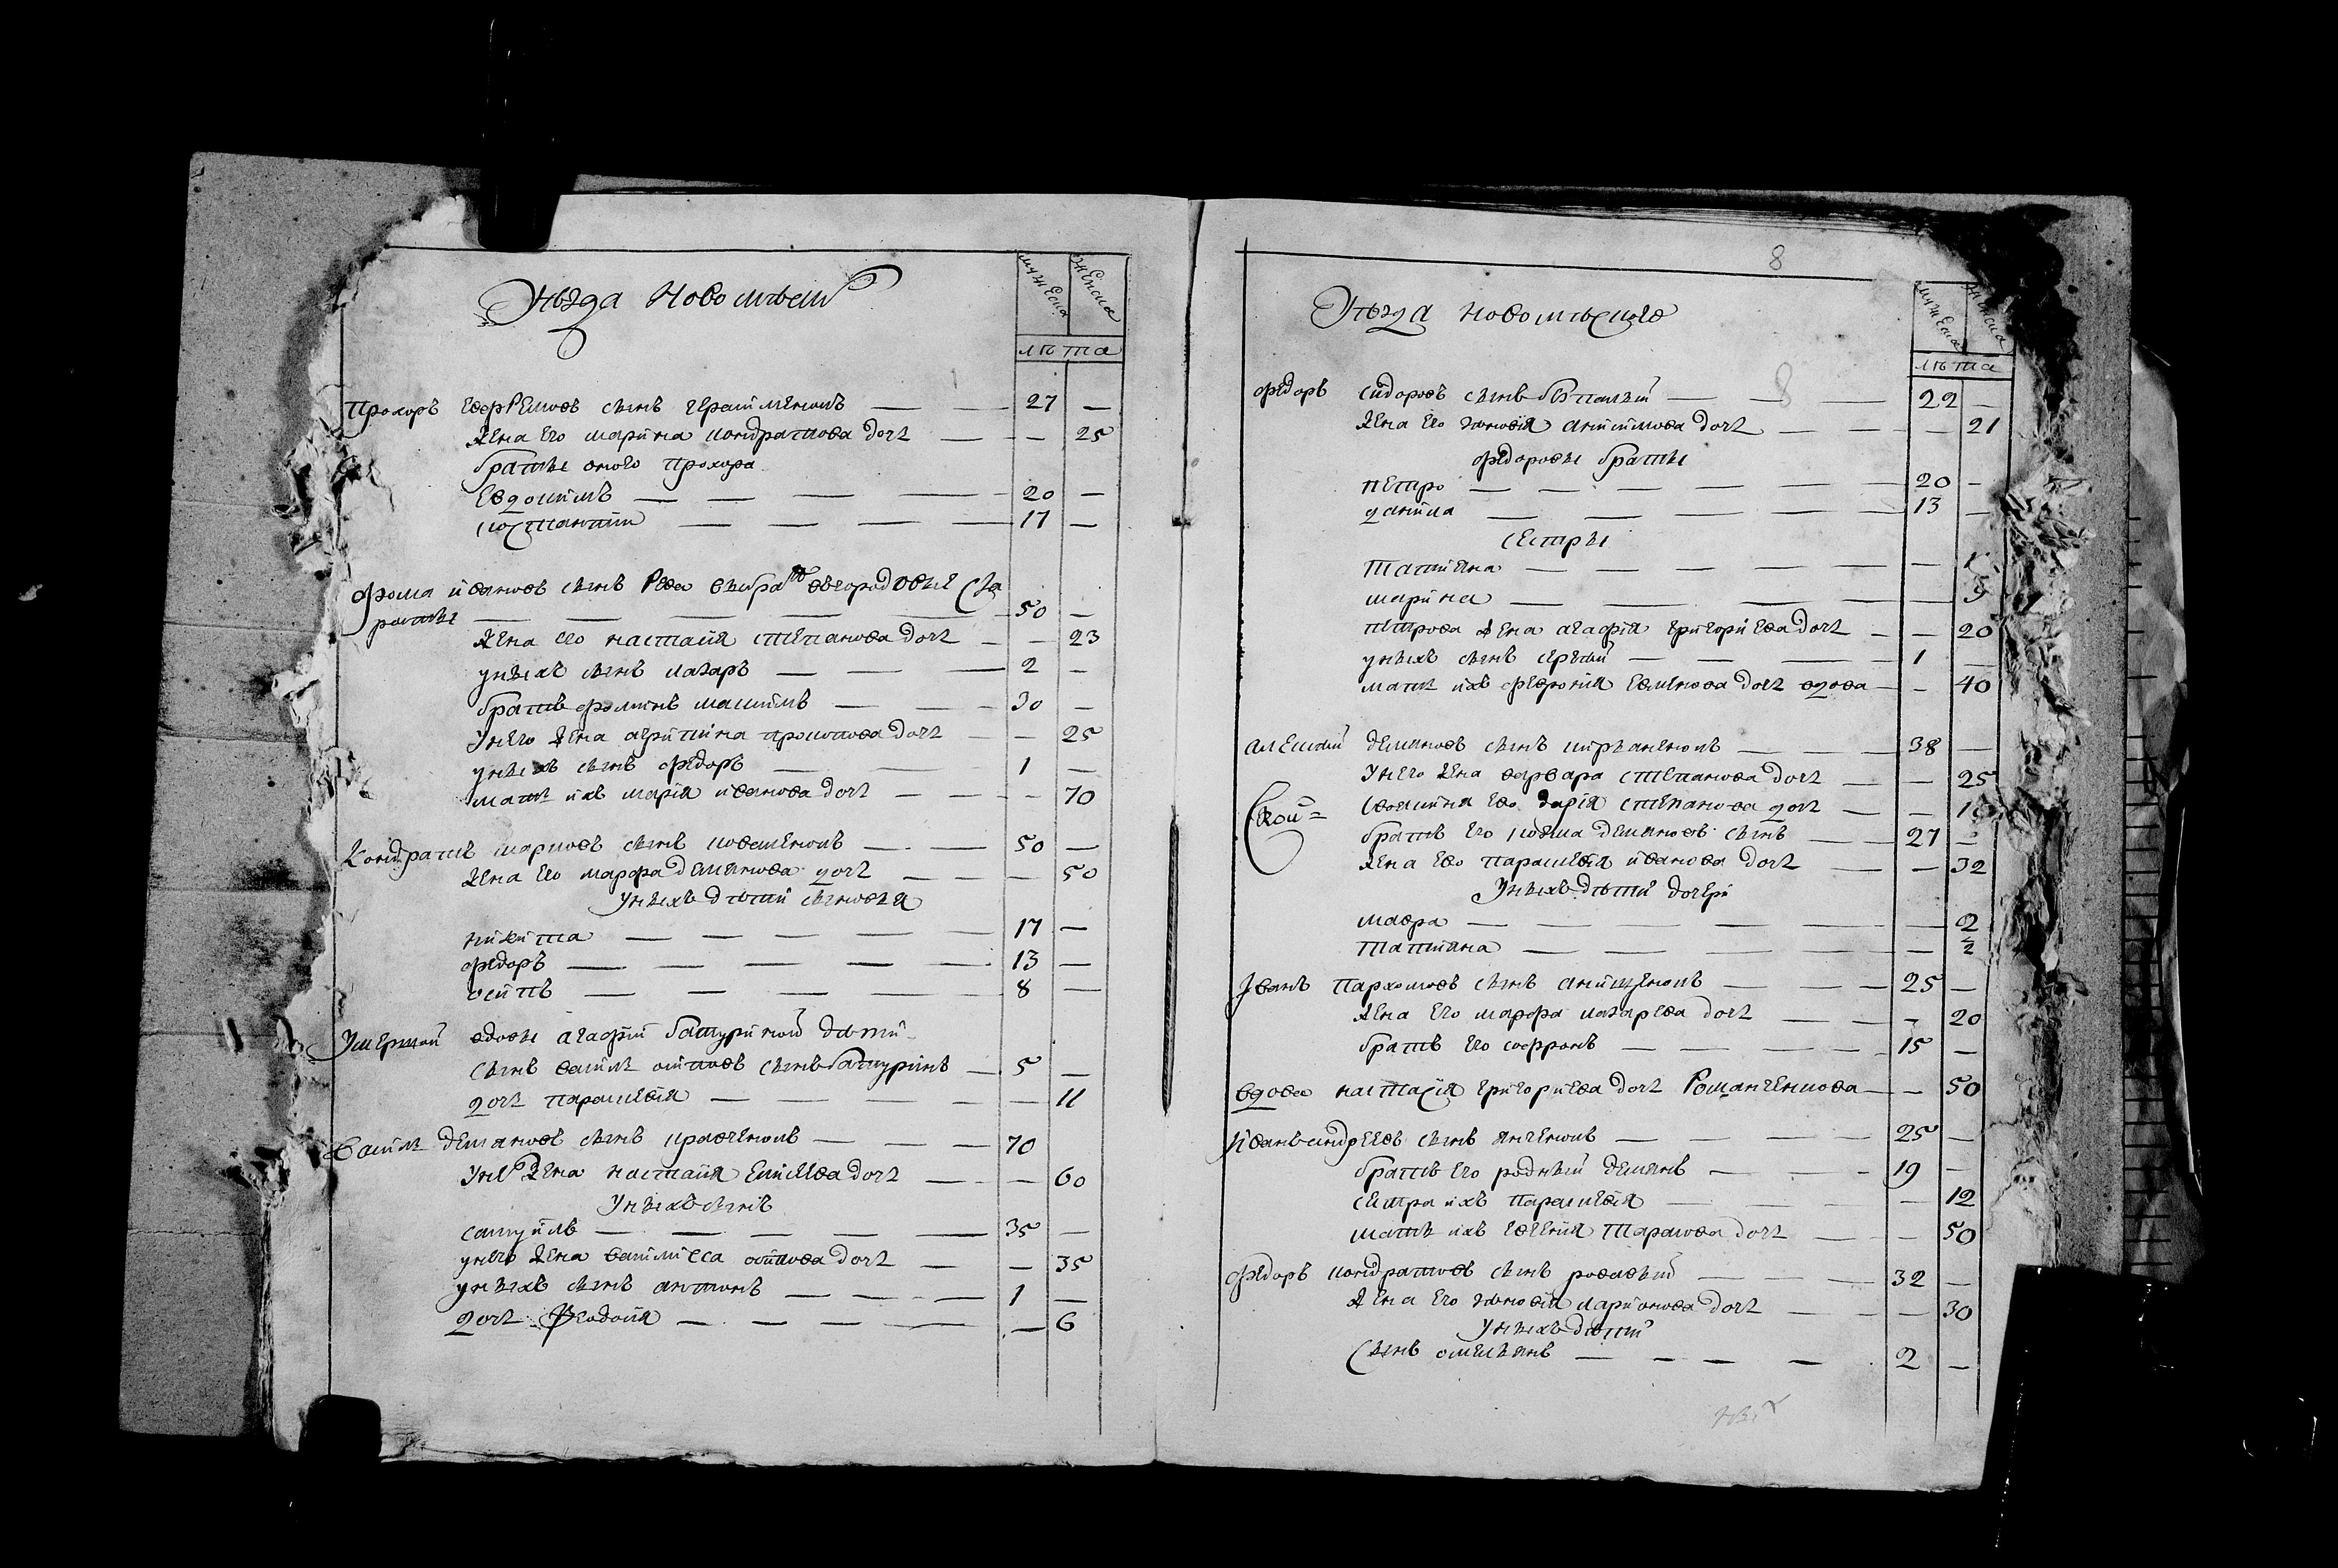 Уѣзда Новомлѣски
мужеска женска
лѣта
Прохоръ Евфремовъ сынъ Герасименокъ — 27 —
жена его марина кондратова дочь — — 25
братьѣ оного прохора
Евдокимъ — 20 —
костантин — 17 —
Фома ивановъ сынъ
ратны — 50 —
жена его настасія степанова дочь — — 23
у ныхъ сынъ лазаръ — 2 —
братъ фоминъ максимъ — 30 —
у него жена агрипина прокопова дочь — — 25
у ныхъ сынъ федоръ — 1 —
мать ихъ марія иванова дочь — — 70
Кондратъ марковъ сынъ — 50 —
жена его марфа демянова дочь — — 50
у ныхъ дѣти сыновья
никита — 17 —
федоръ — 13 —
осипъ — 8 —
Умершой вдовы агафіи батуриной дѣти
сынъ василь осиповъ сынъ батуринъ — 5 —
дочь парасковія — — 11
василь демяновъ сынъ кравченокъ — 70
у него жена настасія дочь — — 60
у ныхъ сынъ
самуилъ — 35 —
у него жена василиса осипова дочь — — 35
у ныхъ сынъ антонъ — 1 —
дочь Феодосія — — 6
8
Уѣзда новомлѣского
мужеска женска
лѣта
8
федоръ сидоровъ сынъ — 22 —
жена его зѣновія дочь — — 21
федоровы братьѣ
петро — 20 —
данила — 13 —
сестры
татияна —
марина — — 9
петрова жена агафія григориева дочь — — 20
у ныхъ сынъ сергѣй — 1 —
мать ихъ феврония дочь вдова — — 40
алексѣй демяновъ сынъ — 38 —
у него жена варвара степанова дочь — — 25
его дарія степанова дочь —
братъ его козма демяновъ сынъ — 27 —
жена его парасковія иванова дочь — — 32
у ныхъ дѣти дочери
мавра — — 2
татияна — — 2
Иванъ пархомовъ сынъ — 25 —
жена его марфа лазарева дочь — — 20
братъ его софронъ — 15 —
вдова настасія григориева дочь Романченкова — — 50
Иванъ андреевъ сынъ янченокъ — 25 —
братъ его родный демянъ — 19 —
сестра ихъ парасковія — — 12
мать ихъ евгения тарасова дочь — — 50
федоръ кондратовъ сынъ — 32 —
жена его зѣновія ларионова дочь — — 30
у ныхъ дѣти
сынъ омельянъ — 2 —